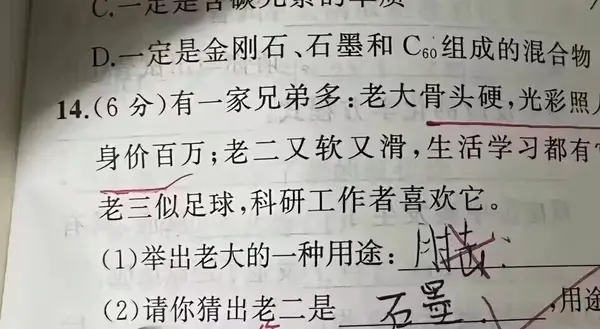 C.一定是含碳元素的单质
D.一定是金刚石、石墨和C₆₀组成的混合物
14.(6分)有一家兄弟多:老大骨头硬,光彩照人
身价百万;老二又软又滑,生活学习都有它
老三似足球,科研工作者喜欢它。
(1)举出老大的一种用途:
(2)请你猜出老二是 石墨 ,用途